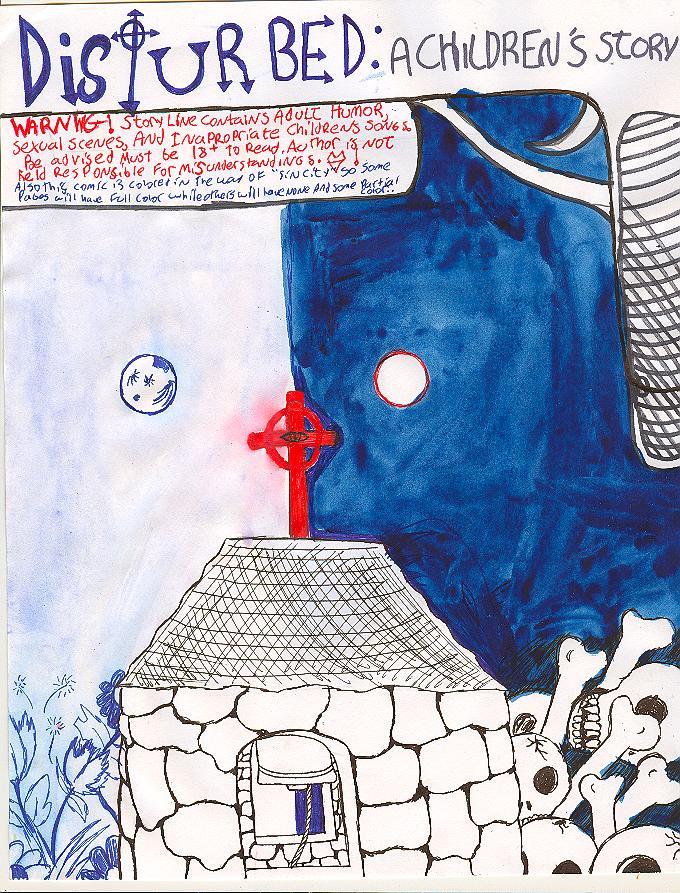 DISTURBED: A CHILDREN'S STORY
WARNING! Story Line Contains Adult Humor,
Sexual Scenes, And Inapropriate Childrens Songs.
Be advised Must be 18+ To Read. Author is NOT
Held RESPONSIBLE FOR MISUNDERSTANDINGS.
Also this comic is colored in the way of "SIN CITY" so some
Pages will have Full Color while others will have None And some Partial
color..